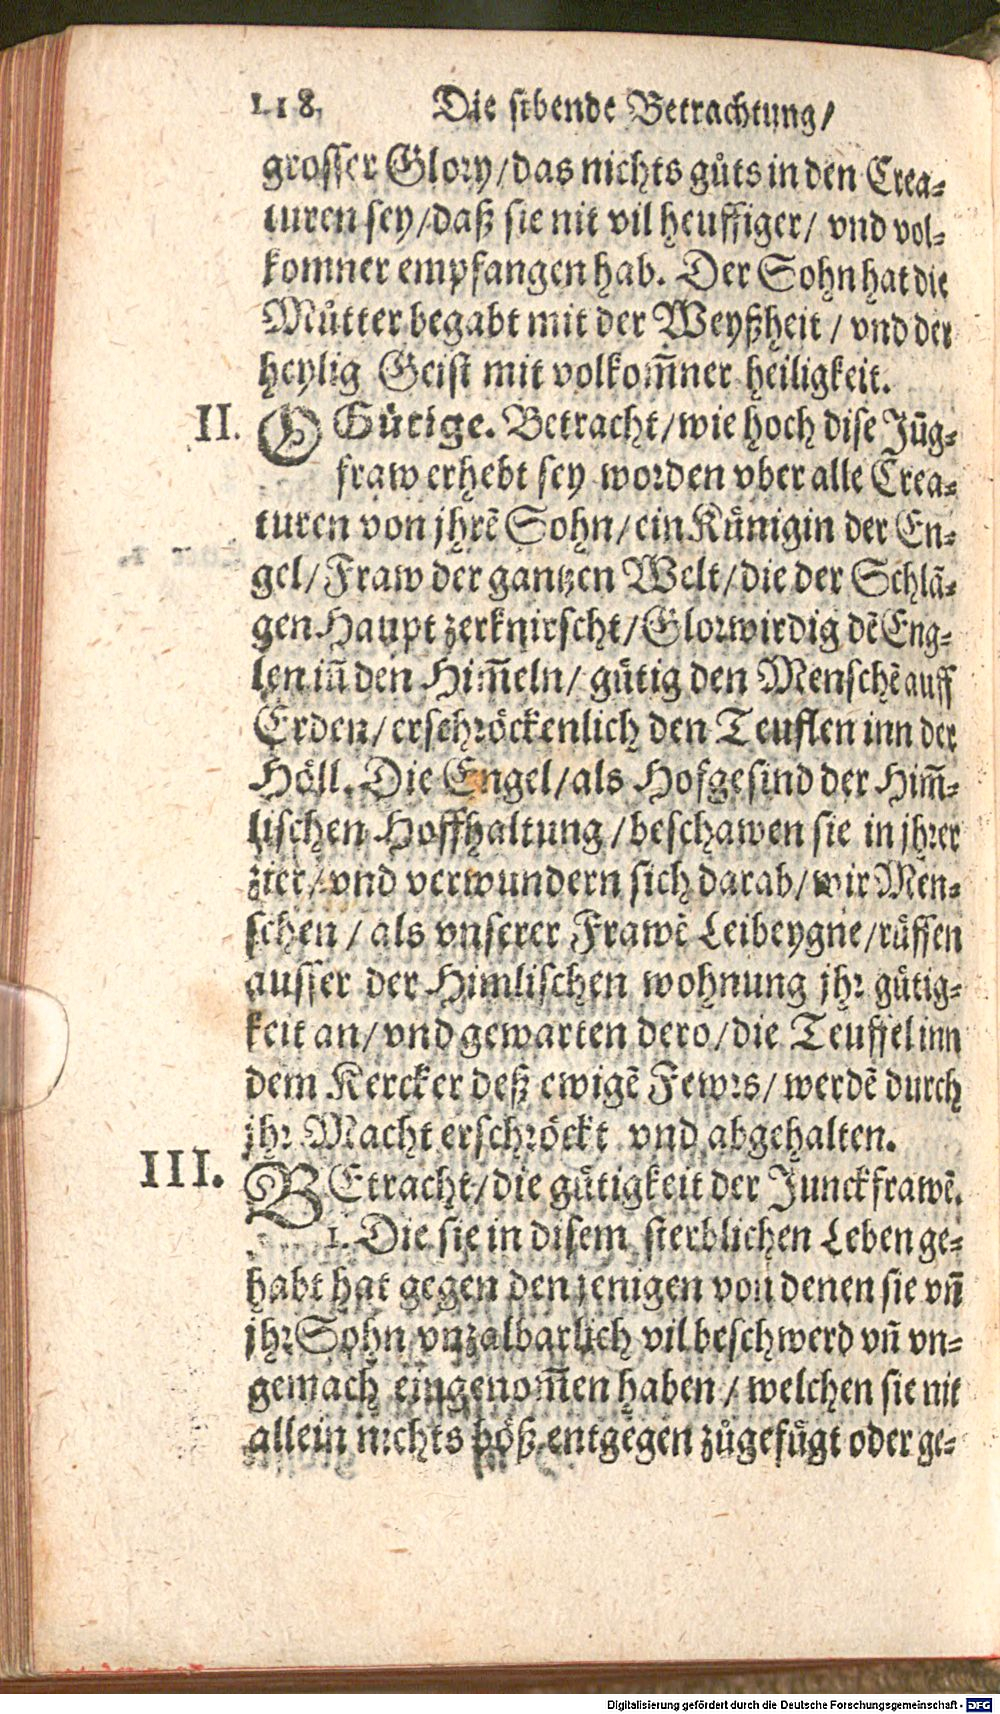 118. Die sibende Betrachtung/
grosser Glory/das nichts gůts in den Crea-
turen sey/daß sie nit vil heuffiger/ vnd vol-
komner empfangen hab. Der Sohn hat die
Můtter begabt mit der Weyßheit / vnd der
heylig Geist mit volkom̃ner heiligkeit.
II. O Gütige. Betracht/wie hoch dise Jũg-
fraw erhebt sey worden vber alle Crea-
turen von jhrẽ Sohn/ein Künigin der En-
gel/ Fraw der gantzen Welt/die der Schlã-
gen Haupt zerknirscht/Glorwirdig dẽ Eng-
len iñ den Him̃eln/ gütig den Menschẽ auff
Erden/erschröckenlich den Teuflen inn der
Höll. Die Engel/als Hofgesind der Him̃-
lischen Hoffhaltung/beschawen sie in jhrer
zier/vnd verwundern sich darab/wir Men-
schen / als vnserer Frawẽ Leibeygne/rüffen
ausser der Himlischen wohnung jhr gütig-
keit an/vnd gewarten dero/die Teuffel inn
dem Kercker deß ewigẽ Fewrs/ werdẽ durch
jhr Macht erschröckt vnd abgehalten.
III. BEtracht/die gütigkeit der Junckfrawẽ.
1. Die sie in disem sterblichen Leben ge-
habt hat gegen den jenigen von denen sie vñ
jhr Sohn vnzalbarlich vil beschwerd vñ vn-
gemach eingenom̃en haben / welchen sie nit
allein nichts böß entgegen zůgefügt oder ge-
Digitalisierung gefördert durch die Deutsche Forschungsgemeinschaft - DFG